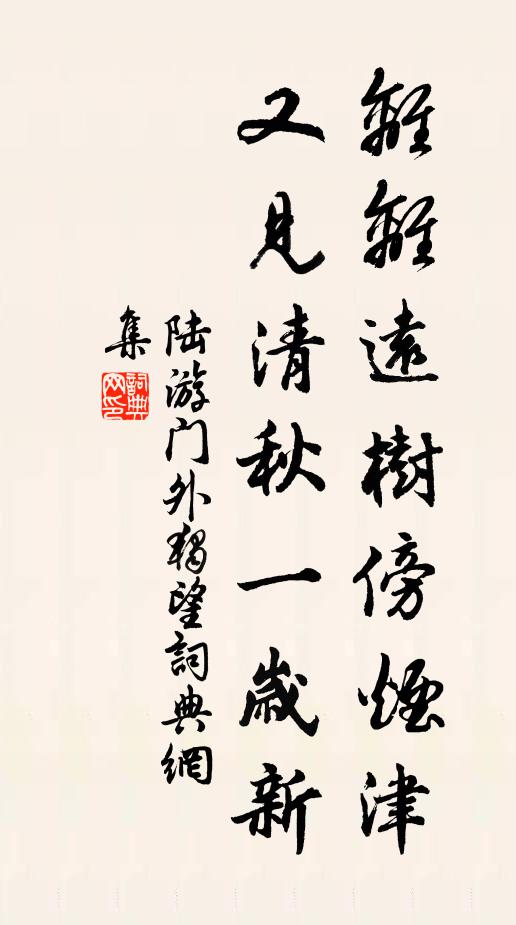 離離遠樹傍煙津
又見清秋一歲新
陆游门外獨望詞典網
集
詞典
网印